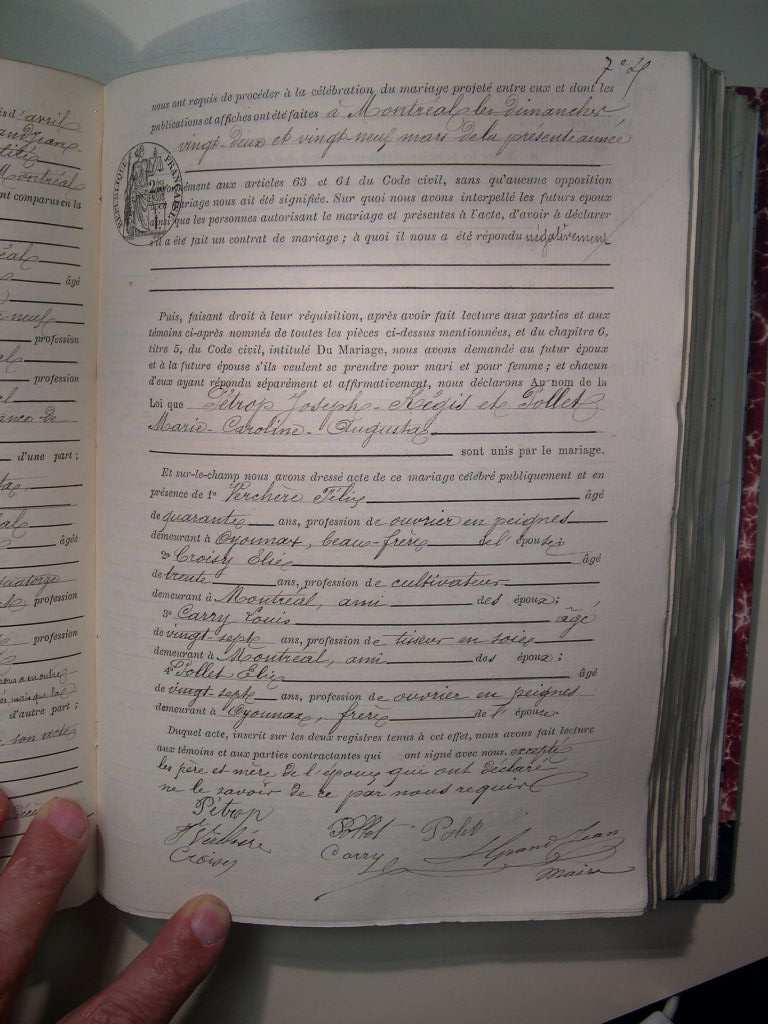 7e f
nous ont requis de procéder à la célébration du mariage projeté entre eux et dont les
publications et affiches ont été faites à Montréal les dimanches
vingt-deux et vingt-neuf mars de la présente année
RÉPUBLIQUE FRANÇAISE
Conformément aux articles 63 et 64 du Code civil, sans qu'aucune opposition
au mariage nous ait été signifiée. Sur quoi nous avons interpellé les futurs époux
ainsi que les personnes autorisant le mariage et présentes à l'acte, d'avoir à déclarer
s'il a été fait un contrat de mariage ; à quoi il nous a été répondu négativement
Puis, faisant droit à leur réquisition, après avoir fait lecture aux parties et aux
témoins ci-après nommés de toutes les pièces ci-dessus mentionnées, et du chapitre 6,
titre 5, du Code civil, intitulé Du Mariage, nous avons demandé au futur époux
et à la future épouse s'ils veulent se prendre pour mari et pour femme ; et chacun
d'eux ayant répondu séparément et affirmativement, nous déclarons Au nom de la
Loi que Pétrop Joseph-Régis et Pollet
Marie-Caroline-Augusta
sont unis par le mariage.
Et sur-le-champ nous avons dressé acte de ce mariage célébré publiquement et en
présence de 1º Verchère Félix âgé
de quarante ans, profession de ouvrier en peignes
demeurant à Oyonnax, beau-frère de l'épouse ;
2º Croisy Elie âgé
de trente ans, profession de cultivateur
demeurant à Montréal, ami des époux ;
3º Carry Louis âgé
de vingt sept ans, profession de tisseur en soie
demeurant à Montréal, ami des époux ;
4º Pollet Elie âgé
de vingt sept ans, profession de ouvrier en peignes
demeurant à Oyonnax, frère de l'épouse
Duquel acte, inscrit sur les deux registres tenus à cet effet, nous avons fait lecture
aux témoins et aux parties contractantes qui ont signé avec nous, excepté
les père et mère de l'époux qui ont déclaré
ne le savoir de ce par nous requis
Pétrop
F Verchère Pollet Pollet
Croisy Carry Grand Jean
Maire
avril
Montréal
ont comparus en la
âgé
profession
profession
d'une part ;
âgés
profession
profession
d'autre part ;
son acte